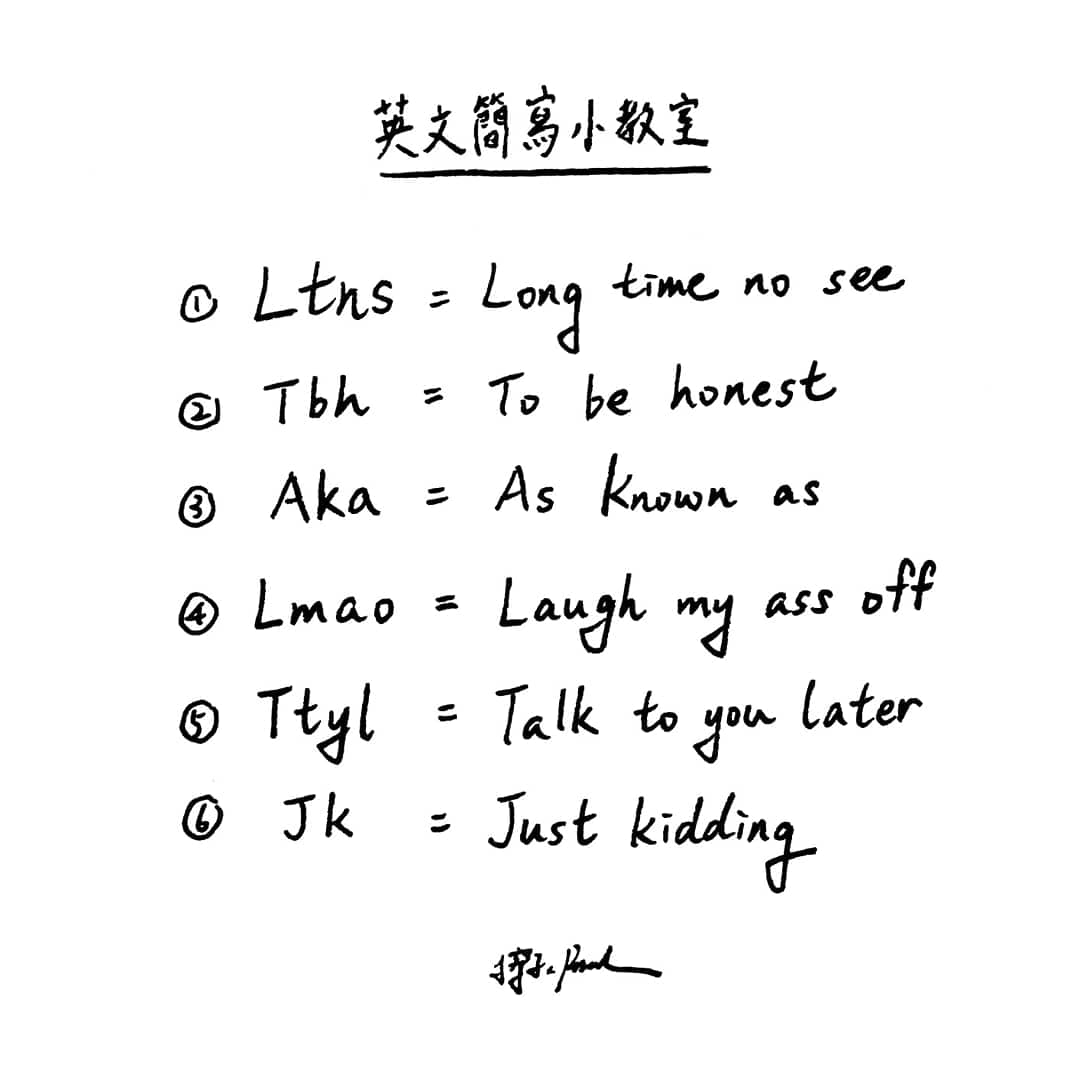 英文簡寫小教室
① Ltns = Long time no see
② Tbh = To be honest
③ Aka = As known as
④ Lmao = Laugh my ass off
⑤ Ttyl = Talk to you later
⑥ Jk = Just kidding